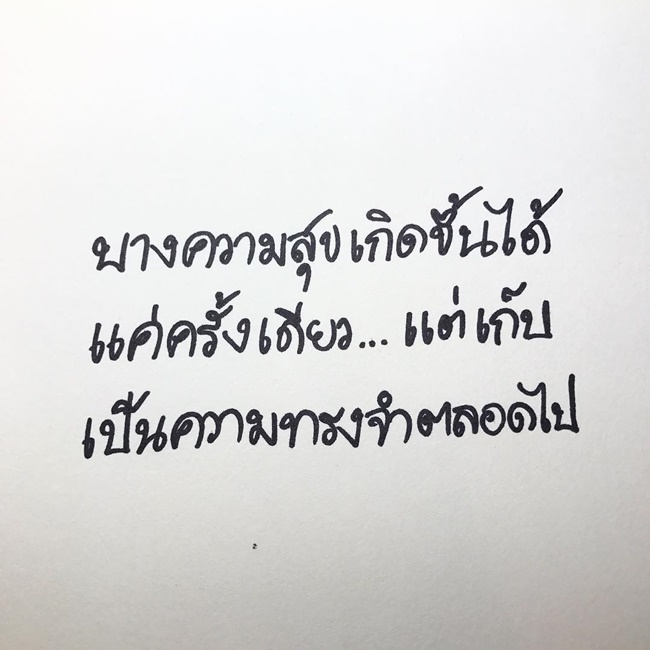 บางความสุขเกิดขึ้นได้
แค่ครั้งเดียว... แต่เก็บ
เป็นความทรงจำตลอดไป